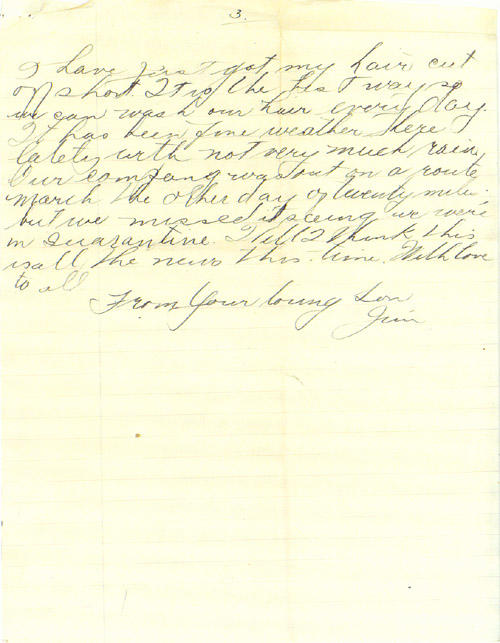 3.
I have just got my hair cut
off short. It is the best way so
we can wash our hair every day.
It has been fine weather here
lately with not very much rain.
Our company was out on a route
march the other day of twenty miles
but we missed it seeing we were
in quarantine. Well I think this
is all the news this time. With love
to all
From Your loving Son
Jim